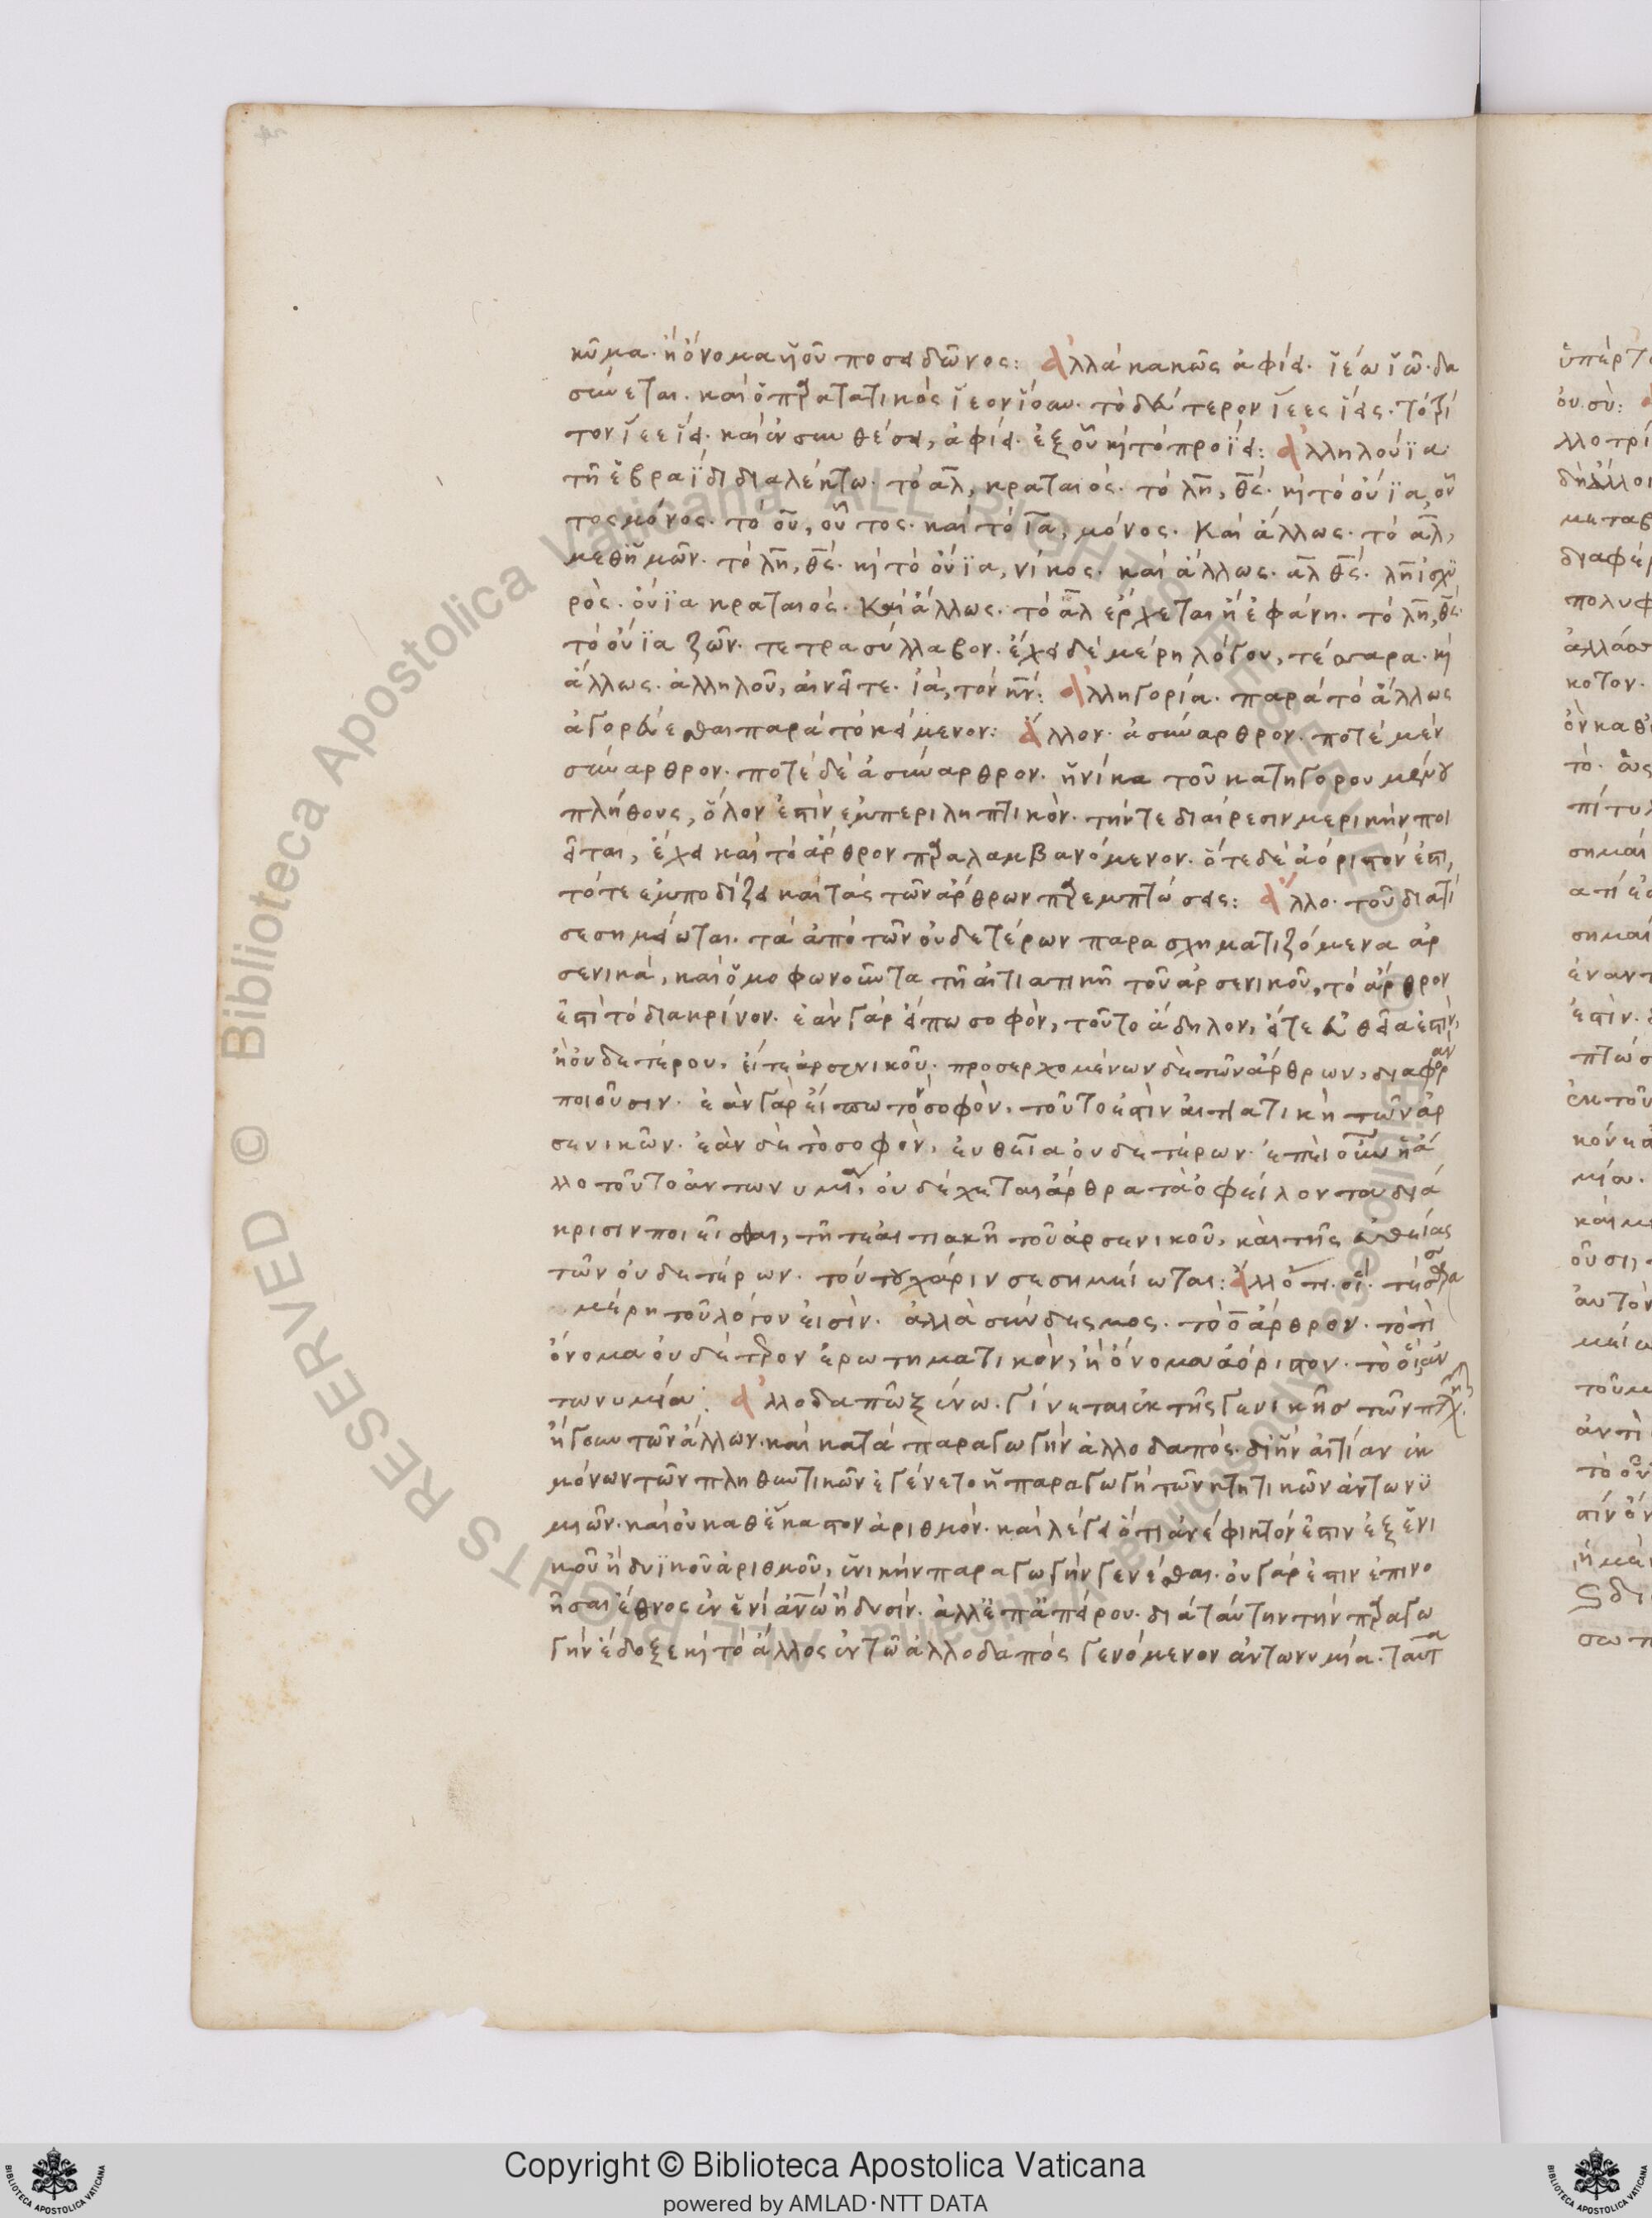 κῦμα. ἢ ὄνομα ἡοῦ ποσειδῶνος: Ἀλλὰ κακῶς ἀφίει. ἱέω ἱῶ. δα
σύνεται. καὶ ὁ πρατατικὸς ἵεον ἵουν. τὸ δεύτερον ἵεες ἵεις. τὸ τρί
τον ἵεε ἵει. καὶ ἐν συνθέσει, ἀφίει. ἐξ οὗ κὶ τὸ προΐει: Ἀλληλούϊα
τῇ ἑβραΐδι διαλέκτω. τὸ αλ, κραταιός. τὸ λη, θς. κὶ τὸ οὐΐα, οὗ
τος μόνος. τὸ οῦ, οὗτος. καὶ τὸ ια, μόνος. Καὶ ἄλλως. τὸ αλ,
μεθ ἡμῶν. τὸ λη, θς. κὶ τὸ οὐΐα, νῖκος. καὶ ἄλλως. αλ θς. λη ἰσχυ
ρὸς. οὐΐα κραταιός. Καὶ ἄλλως. τὸ αλ ἔρχεται ἢ ἐφάνη. τὸ λη, θς.
τὸ οὐΐα ζῶν. τετρασύλλαβον. ἔχει δὲ μέρη λόγου, τέσσαρα. κὶ
ἄλλως. ἀλληλοῦ, αἰνεῖτε. ἰά, τὸν κν: Ἀλληγορία. παρὰ τὸ ἄλλως
ἀγορεύεσθαι παρὰ τὸ κείμενον: Ἄλλον. ἀσύναρθρον. ποτὲ μὲν
σύναρθρον. ποτὲ δὲ ἀσύναρθρον. ἡνίκα τοῦ κατηγορουμένου
πλήθους, ὅλον ἐστὶν ἐμπεριληπτικὸν. τήν τε διαίρεσιν μερικὴν ποι
εῖται, ἔχει καὶ τὸ ἄρθρον πραλαμβανόμενον. ὅτε δὲ ἀόριστόν ἐστι,
τότε ἐμποδίζει καὶ τὰς τῶν ἄρθρων πρεμπτώσεις: Ἄλλο. τοῦ διατί
σεσημείωται. τὰ ἀπὸ τῶν οὐδετέρων παρασχηματιζόμενα ἀρ
σενικὰ, καὶ ὁμοφωνοῦντα τῇ αἰτιατικῇ τοῦ ἀρσενικοῦ, τὸ ἄρθρον
ἐστὶ τὸ διακρίνον. ἐὰν γὰρ εἴπω σοφὸν, τοῦτο ἄδηλον, εἴτε εὐθεῖα ἐστὶν,
ἢ οὐδετέρου, εἴτε ἀρσενικοῦ. προσερχομένων δὲ τῶν ἄρθρων, διαφορὰν
ποιοῦσιν. ἐὰν γὰρ εἴπω τὸν σοφὸν, τοῦτο ἐστὶν αἰτιατικὴ τῶν ἀρ
σενικῶν. ἐὰν δὲ τὸ σοφὸν, εὐθεῖα οὐδετέρων. ἐπεὶ οὖν ἡ ἄ
λλο τοῦτο ἀντωνυμία, οὐ δέχεται ἄρθρα τὰ ὀφείλοντα διά
κρισιν ποιεῖσθαι, τῇ τε αἰτιακῇ τοῦ ἀρσενικοῦ, καὶ τῆς εὐθείας
τῶν οὐδετέρων. τούτου χάριν σεσημείωται: Ἀλλ ὅτι. οἱ. τέσσρα
μέρη τοῦ λόγου εἰσὶν. ἀλλὰ σύνδεσμος. τὸ ὁ ἄρθρον. τὸ τὶ
ὄνομα οὐδέτερον ἐρωτηματικὸν, ἢ ὄνομα ἀόριστον. τὸ οἱ, ἀν
τωνυμία: Ἀλλοδαπῶ ξένω. γίνεται ἐκ τῆς γενικῆς τῶν πτχ.
ἤγουν τῶν ἄλλων. καὶ κατὰ παραγωγὴν ἀλλοδαπός. δι ἣν αἰτίαν ἐκ
μόνων τῶν πληθυντικῶν ἐγένετο ἡ παραγωγὴ τῶν κτητικῶν ἀντωνυ
μιῶν. καὶ οὐ καθ ἕκαστον ἀριθμὸν. καὶ λέγει ὅτι ἀνέφικτόν ἐστιν ἐξ ἑνι
κοῦ ἢ δυϊκοῦ ἀριθμοῦ, ἐνικὴν παραγωγὴν γενέσθαι. οὐ γάρ ἐστιν ἐπινο
ῆσαι ἔθνος ἐν ἑνὶ ἀνω ἢ δυσίν. ἀλλ ἐπ ἀπείρου. διὰ ταύτην τὴν πραγω
γὴν ἔδοξε κὶ τὸ ἄλλος ἐν τῶ ἀλλοδαπός γενόμενον ἀντωνυμία. ταῦτα